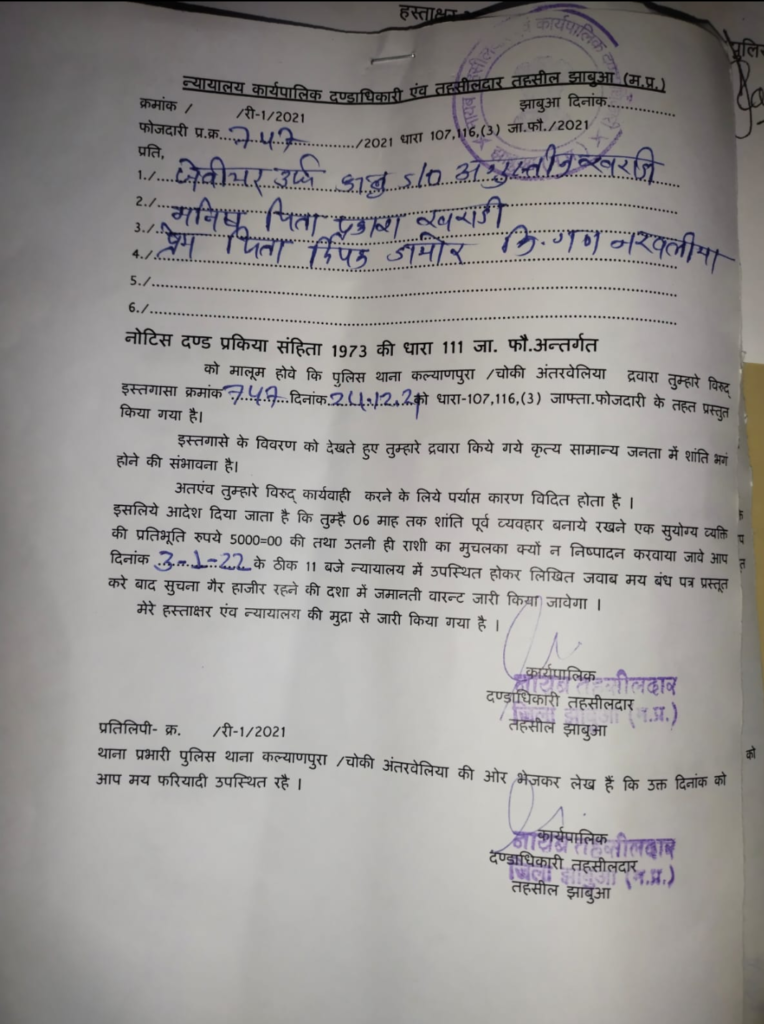 हस्ताक्षर
कार्यपालिक
न्यायालय कार्यपालिक दण्डाधिकारी एंव तहसीलदार तहसील झाबुआ (म.प्र.)
क्रमांक / /री-1/2021 झाबुआ दिनांक..............
फोजदारी प्र.क्र. 747 /2021 धारा 107,116,(3) जा.फौ./2021
प्रति,
1./ उर्फ s/o
2./ मनिष पिता प्रकाश खराडी
3./ प्रेम पिता दिपक डामोर नि. गण नरवलीया
4./
5./
6./
नोटिस दण्ड प्रकिया संहिता 1973 की धारा 111 जा. फौ.अन्तर्गत
को मालूम होवे कि पुलिस थाना कल्याणपुरा /चोकी अंतरवेलिया द्रवारा तुम्हारे विरुद्
इस्तगासा क्रमांक 747 दिनांक 24.12.21 को धारा-107,116,(3) जाफ्ता.फोजदारी के तहत प्रस्तुत
किया गया है।
इस्तगासे के विवरण को देखते हुए तुम्हारे द्रवारा किये गये कृत्य सामान्य जनता में शांति भगं
होने की संभावना है।
अतएंव तुम्हारे विरुद् कार्यवाही करने के लिये पर्याप्त कारण विदित होता है ।
इसलिये आदेश दिया जाता है कि तुम्है 06 माह तक शांति पूर्व व्यवहार बनाये रखने एक सुयोग्य व्यक्ति
की प्रतिभूति रुपये 5000=00 की तथा उतनी ही राशी का मुचलका क्यों न निष्पादन करवाया जावे आप
दिनांक 3-1-22 के ठीक 11 बजे न्यायालय में उपस्थित होकर लिखित जवाब मय बंध पत्र प्रस्तूत
करे बाद सुचना गैर हाजीर रहने की दशा में जमानती वारन्ट जारी किया जावेगा ।
मेरे हस्ताक्षर एंव न्यायालय की मुद्रा से जारी किया गया है ।
कार्यपालिक
नायब तहसीलदार
दण्डाधिकारी तहसीलदार
जिला झाबुआ (म.प्र.)
तहसील झाबुआ
प्रतिलिपी- क्र. /री-1/2021
थाना प्रभारी पुलिस थाना कल्याणपुरा /चोकी अंतरवेलिया की ओर भेजकर लेख हैं कि उक्त दिनांक को
आप मय फरियादी उपस्थित रहै ।
कार्यपालिक
नायब तहसीलदार
दण्डाधिकारी तहसीलदार
जिला झाबुआ (म.प्र.)
तहसील झाबुआ